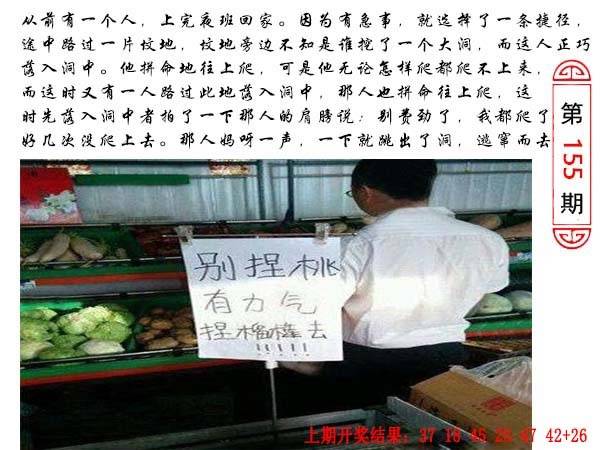 从前有一个人，上完夜班回家。因为有急事，就选择了一条捷径，
途中路过一片坟地，坟地旁边不知是谁挖了一个大洞，而这人正巧
落入洞中。他拼命地往上爬，可是他无论怎样爬都爬不上来，
而这时又有一人路过此地落入洞中，那人也拼命往上爬，这
时先落入洞中者拍了一下那人的肩膀说：别费劲了，我都爬了
好几次没爬上去。那人妈呀一声，一下就跳出了洞，逃窜而去
第155期
别捏桃
有力气
捏榴梿去
!!!!!
上期开奖结果：37 18 45 47 42+26